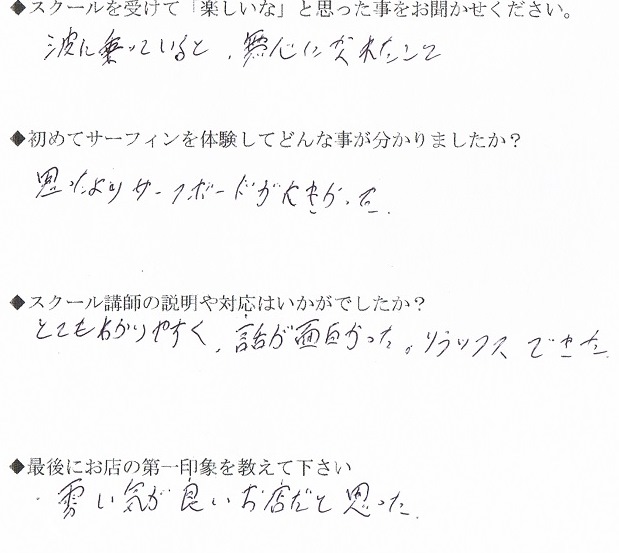 ◆スクールを受けて「楽しいな」と思った事をお聞かせください。
波に乗っていると、無心になれたこと
◆初めてサーフィンを体験してどんな事が分かりましたか？
思ったよりサーフボードが大きかった.
◆スクール講師の説明や対応はいかがでしたか？
とてもわかりやすく、話が面白かった。リラックスできた.
◆最後にお店の第一印象を教えて下さい
・雰い気が良いお店だと思った.